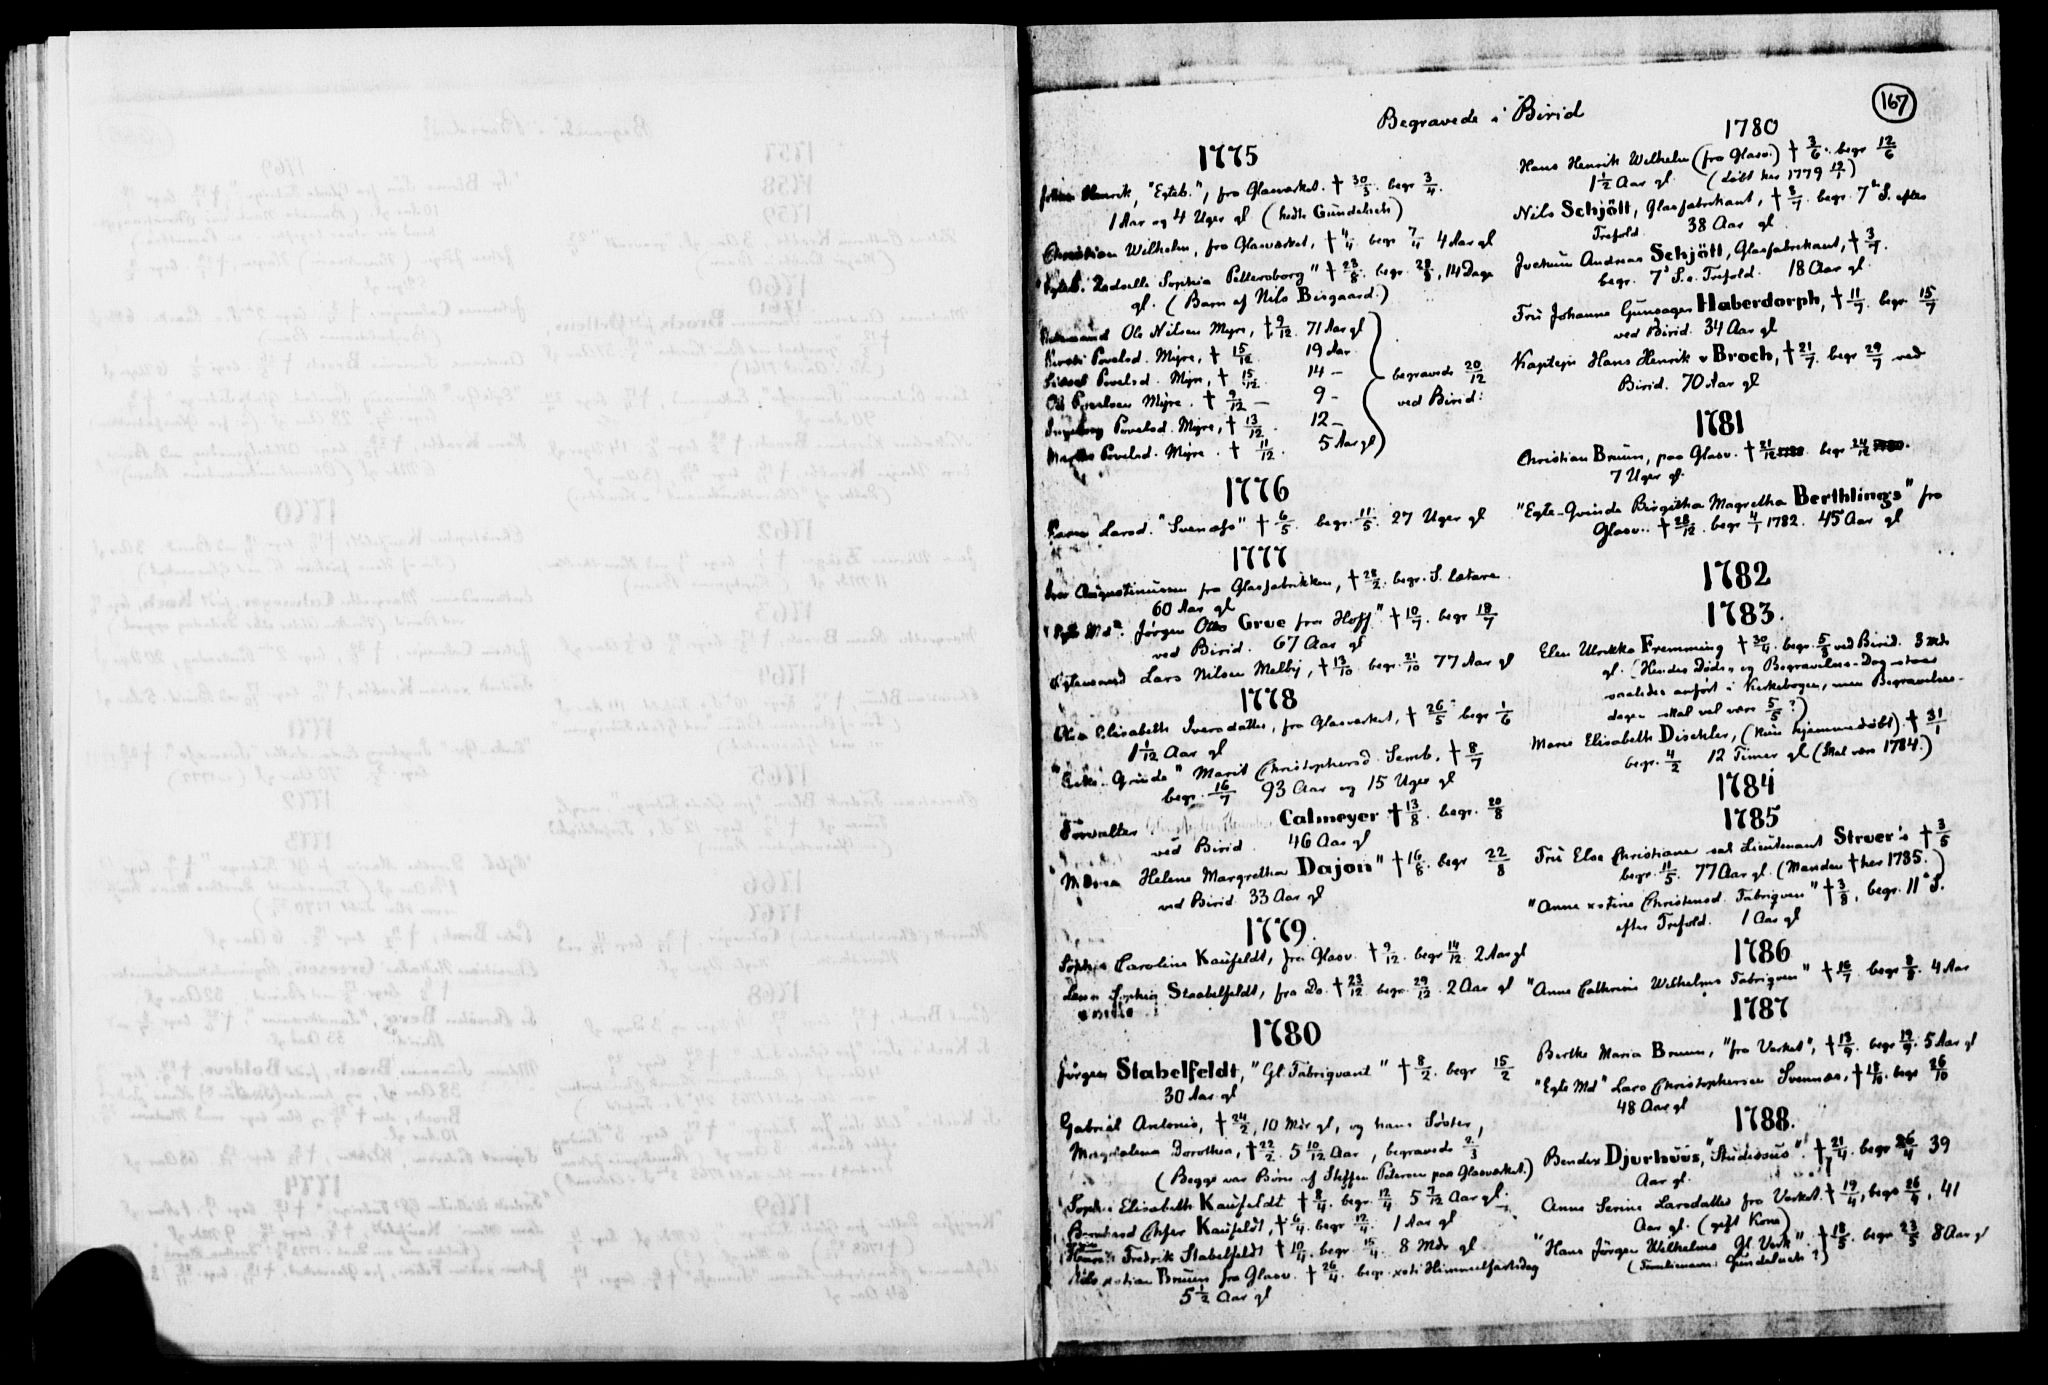 167
Begravede i Birid
1775
Johan Henrik, "Egteb.", fra Glasværket. † 30/3 begr 3/4.
1 Aar og 4 Uger gl (hedte Gundelach)
Christian Wilhelm, fra Glasværket, † 4/4 begr 7/4 4 Aar gl
"Egteb. Zadselle Sophia Pettersborg" † 23/8. begr. 28/8, 14 Dage
gl. (Barn af Nils Bisgaard.)
Ole Nilsen Myre, † 9/12. 71 Aar gl
Kirsti Povelsd. Mijre, † 15/12. 19 Aar
Sidsel Povelsd. Mijre, † 15/12. 14 —
Ole Povelsen Mijre. † 9/12 — 9 —
Ingeborg Povelsd. Mijre, † 13/12. 12 —
Marthe Povelsd. Mijre. † 11/12. 5 Aar gl
begravede 20/12
ved Birid:
1776
Karen Larsd. "Svenæss" † 6/5 begr. 11/5. 27 Uger gl
1777
Iver Augustinussen fra Glasfabrikken, † 28/2. begr. S. lætare
60 Aar gl
"Egte Md. Jørgen Otto Grue fra Hoff" † 10/7. begr 18/7
ved Birid. 67 Aar gl
Egtemand Lars Nilsen Melbij, † 13/10 begr. 21/10 77 Aar gl
1778
Elisabeth Iversdatter, fra Glasværket, † 26/5 begr 1/6
1 1/12 Aar gl
"Enke-Qvinde" Marit Christophersd. Semb, † 8/7
begr. 16/7 93 Aar og 15 Uger gl
Forvalter Calmeyer † 13/8. begr. 20/8
ved Birid. 46 Aar gl
Helene Margretha Dajon" † 16/8. begr 22/8
ved Birid 33 Aar gl
1779.
Sophie Caroline Kaufeldt, fra Glasv. † 9/12. begr 14/12 2 Aar gl
Sophia Staabelfeldt, fra Do. † 23/12 begr. 29/12. 2 Aar gl
1780
Jørgen Stabelfeldt, "Gl. Fabriqvant" † 8/2. begr 15/2
30 Aar gl
Gabriel Antonio, † 24/2, 10 Mdr gl, og hans Søster,
Magdalena Dorothea, † 22/2. 5 10/12 Aar, begravede 2/3
(Begge var Børn af Steffen Petersen paa Glasværket.)
Sophie Elisabeth Kaufeldt † 8/4. begr. 12/4 5 7/12 Aar gl.
Bernhard Chfer Kaufeldt, † 6/4. begr 12/4. 1 Aar gl
Fredrik Stabelfeldt † 10/4. begr. 15/4. 8 Mdr gl.
Nils xstian Bruun fra Glasv. † 26/4. begr. xsti Himmelfartsdag
5 1/2 Aar gl
1780
Hans Henrik Wilhelm (fra Glasv.) † 3/6. begr 12/6
1 1/2 Aar gl. (døbt her 1779 12/1)
Nils Schjött, Glasfabrikant, † 3/7. begr. 7de S. efter
Trefold. 38 Aar gl
Jochum Andreas Schjött, Glasfabrikant, † 3/7.
begr. 7de S. e. Trefold. 18 Aar gl.
Fru Johanne Haberdorph, † 11/7. begr. 15/7
ved Birid. 34 Aar gl
Kaptejn Hans Henrik v Broch, † 21/7. begr 29/7 ved
Birid. 70 Aar gl
1781
Christian Bruun, paa Glasv. † 21/12 begr 24/12
7 Uger gl.
"Egte-Qvinde Birgitha Magretha Berthlings" fra
Glasv. † 28/12. begr 4/1 1782. 45 Aar gl
1782
1783.
Elen Ulrikka Fremming † 30/4. begr. 5/3 ved Birid. 3 Mdr
gl. (Hendes Døds- og Begravelses-Dag staar
saaledes anført i Kirkebogen, men Begravelses-
dagen skal vel være 5/5?)
Maren Elisabeth Dischler, (kun hjemmedøbt) † 31/1
begr. 4/2 12 Timer gl (Skal være 1784.)
1784
1785
Fru Else Christiane sal Lieutenant Struer's † 3/5
begr. 11/5. 77 Aar gl. (Manden † her 1785.)
"Anne xstine Christensd. Fabriqven" † 3/8, begr. 11te S.
efter Trefold. 1 Aar gl
1786
"Anne Cathrine Wilhelms Fabriqven" † 16/7 begr 8/8. 4 Aar
1787
Berthe Maria Bruun, "fra Værket", † 13/9. begr 19/9. 5 Aar gl
"Egte Md" Lars Christophersen Svennæs, † 18/10. begr 26/10
48 Aar gl
1788.
Bendex Djurhuus, "Studiosus". † 21/4. begr 26/4 39
Aar gl.
Anne Serine Larsdatter fra Værket † 19/4, begr 26/4, 41
Aar gl. (gift Kone)
"Hans Jörgen Wilhelms Gl. Verk". † 18/5. begr 23/5 8 Aar gl
(Familienavn: Gundelach?)